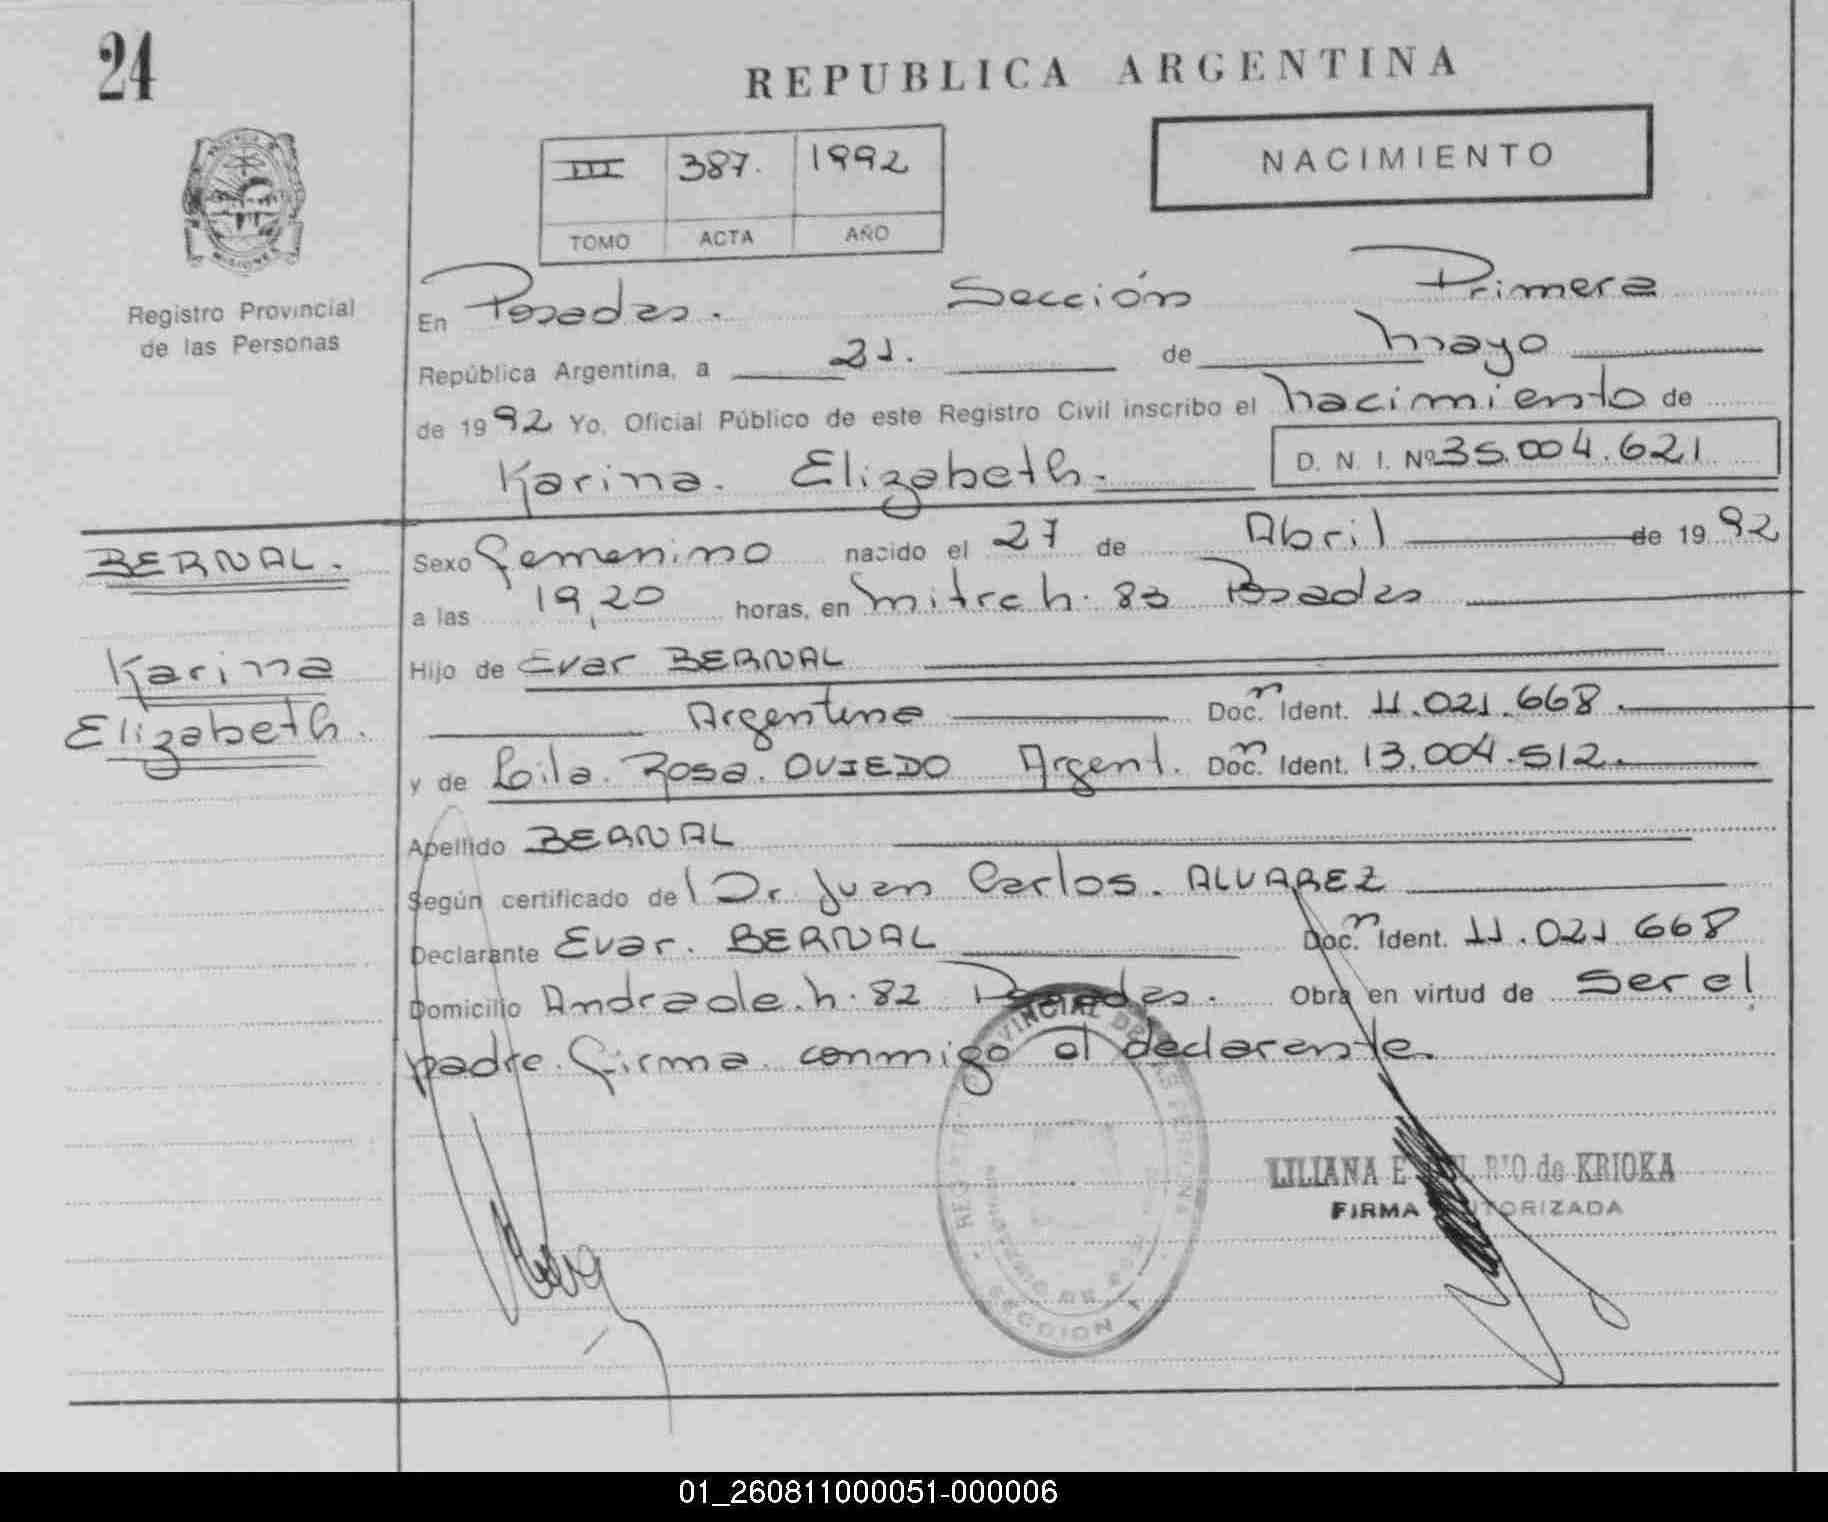 24
REPUBLICA ARGENTINA
NACIMIENTO
III 387. 1992
TOMO ACTA AÑO
Registro Provincial
de las Personas
En Posadas. Sección Primera
República Argentina, a 21. de mayo
de 1992 Yo, Oficial Público de este Registro Civil inscribo el nacimiento de
Karina. Elizabeth. D. N. I. Nº 35.004.621
BERNAL.
Karina
Elizabeth.
Sexo femenino nacido el 27 de Abril de 1992
a las 19,20 horas, en mitre h. 83 Posadas
Hijo de Evar BERNAL
Argentina Doc.n Ident. 11.021.668.
y de Lila. Rosa. OVIEDO Argent. Doc.n Ident. 13.004.512.
Apellido BERNAL
Según certificado de Dr Juan Carlos. ALVAREZ
Declarante Evar. BERNAL Doc.n Ident. 11.021 668
Domicilio Andrade. h. 82 Posadas. Obra en virtud de ser el
padre. firma. conmigo el declarante.
LILIANA E de KRIOKA
FIRMA AUTORIZADA
SECCION 1
01_260811000051-000006